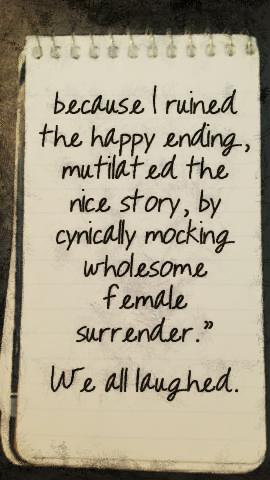 because I ruined
the happy ending,
mutilated the
nice story, by
cynically mocking
wholesome
female
surrender."
We all laughed.